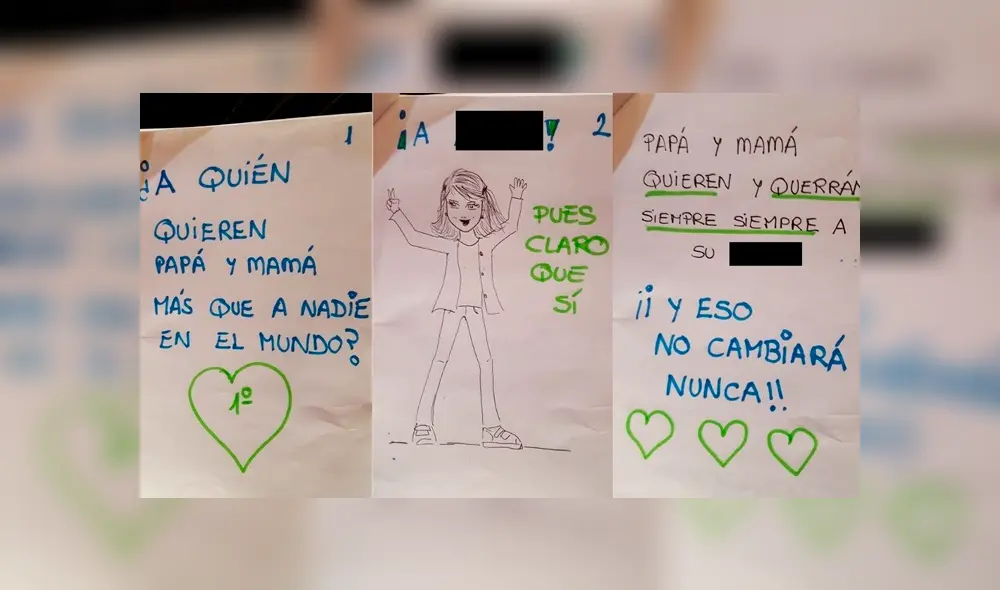 1
¿A QUIÉN
QUIEREN
PAPÁ Y MAMÁ
MÁS QUE A NADIE
EN EL MUNDO?
1º
¡A !
2
PUES
CLARO
QUE
SÍ
PAPÁ Y MAMÁ
QUIEREN Y QUERRÁN
SIEMPRE SIEMPRE A
SU
¡¡ Y ESO
NO CAMBIARÁ
NUNCA!!